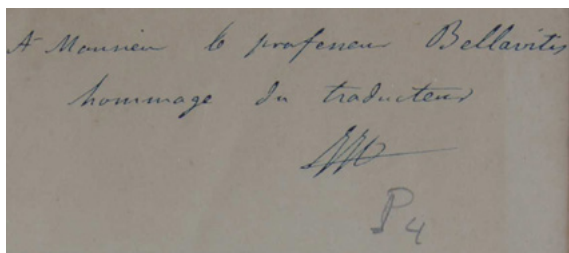 A Monsieur le professeur Bellavitis
hommage du traducteur
P4